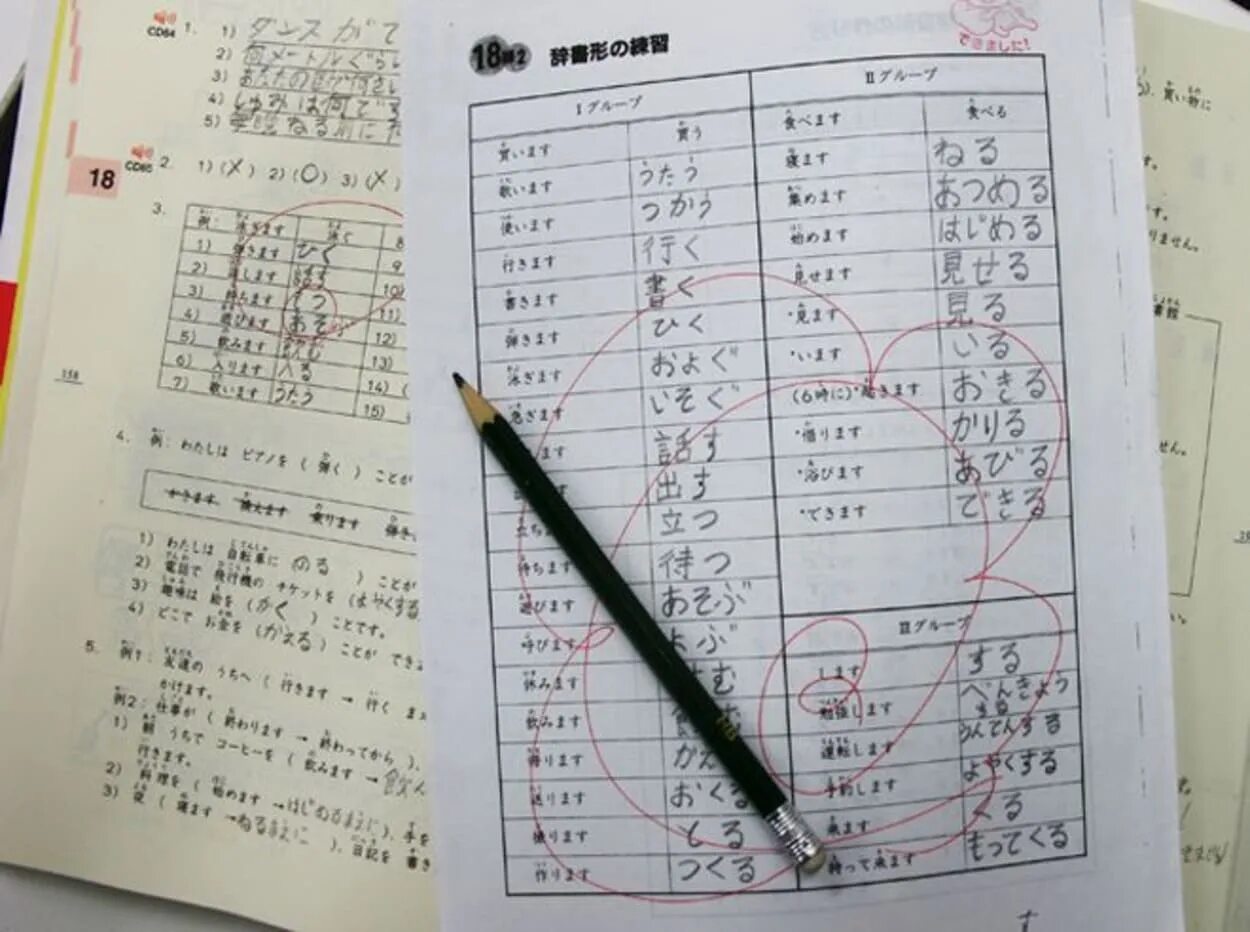 CD64 1. 1) ダンスがで
2) 何メートルぐらい
3)
4) しゅみは何です
5)
18
CD65 2. 1) (X) 2) (O) 3) (X)
3.
例: 泳ぎます およぐ 8
1) 弾きます ひく 9
2) 話します 10)
3) 持ちます もつ 11)
4) 遊びます あそ 12)
5) 飲みます のむ 13)
6) 入ります 入る 14) (
7) 歌います うたう 15)
158
4. 例: わたしは ピアノを ( 弾く ) ことが
かきます 換えます 乗ります 弾き
1) わたしは 自転車に のる ) ことが
2) 電話で 飛行機の チケットを (よやくする
3) 趣味は 絵を (かく ) ことです。
4) どこで お金を (かえる ) ことが できま
5. 例1: 友達の うちへ ( 行きます → 行く ま
かけます。
例2: 仕事が ( 終わります → 終わってから )、
1) 朝 うちで コーヒーを ( 飲みます → 飲
行きます。
2) 料理を ( 始めます → はじめるまえに)、手を
3) 夜 ( 寝ます → ねるまえに )、日記を 書き
18課2 辞書形の練習
できました!
Ⅰグループ
買います 買う
歌います うたう
使います つかう
行きます 行く
書きます 書く
弾きます ひく
泳ぎます およぐ
急ぎます いそぐ
話す
出す
立つ
待ちます 待つ
遊びます あそぶ
呼びます よぶ
休みます
飲みます
帰ります
送ります おくる
撮ります とる
作ります つくる
Ⅱグループ
食べます 食べる
寝ます ねる
集めます あつめる
始めます はじめる
見せます 見せる
・見ます 見る
・います いる
(6時に)・起きます おきる
・借ります かりる
・浴びます あびる
・できます できる
Ⅲグループ
します する
勉強します べんきょうする
運転します うんてんする
予約します よやくする
来ます くる
持って来ます もってくる
買い物に
す。
りません。
せん。